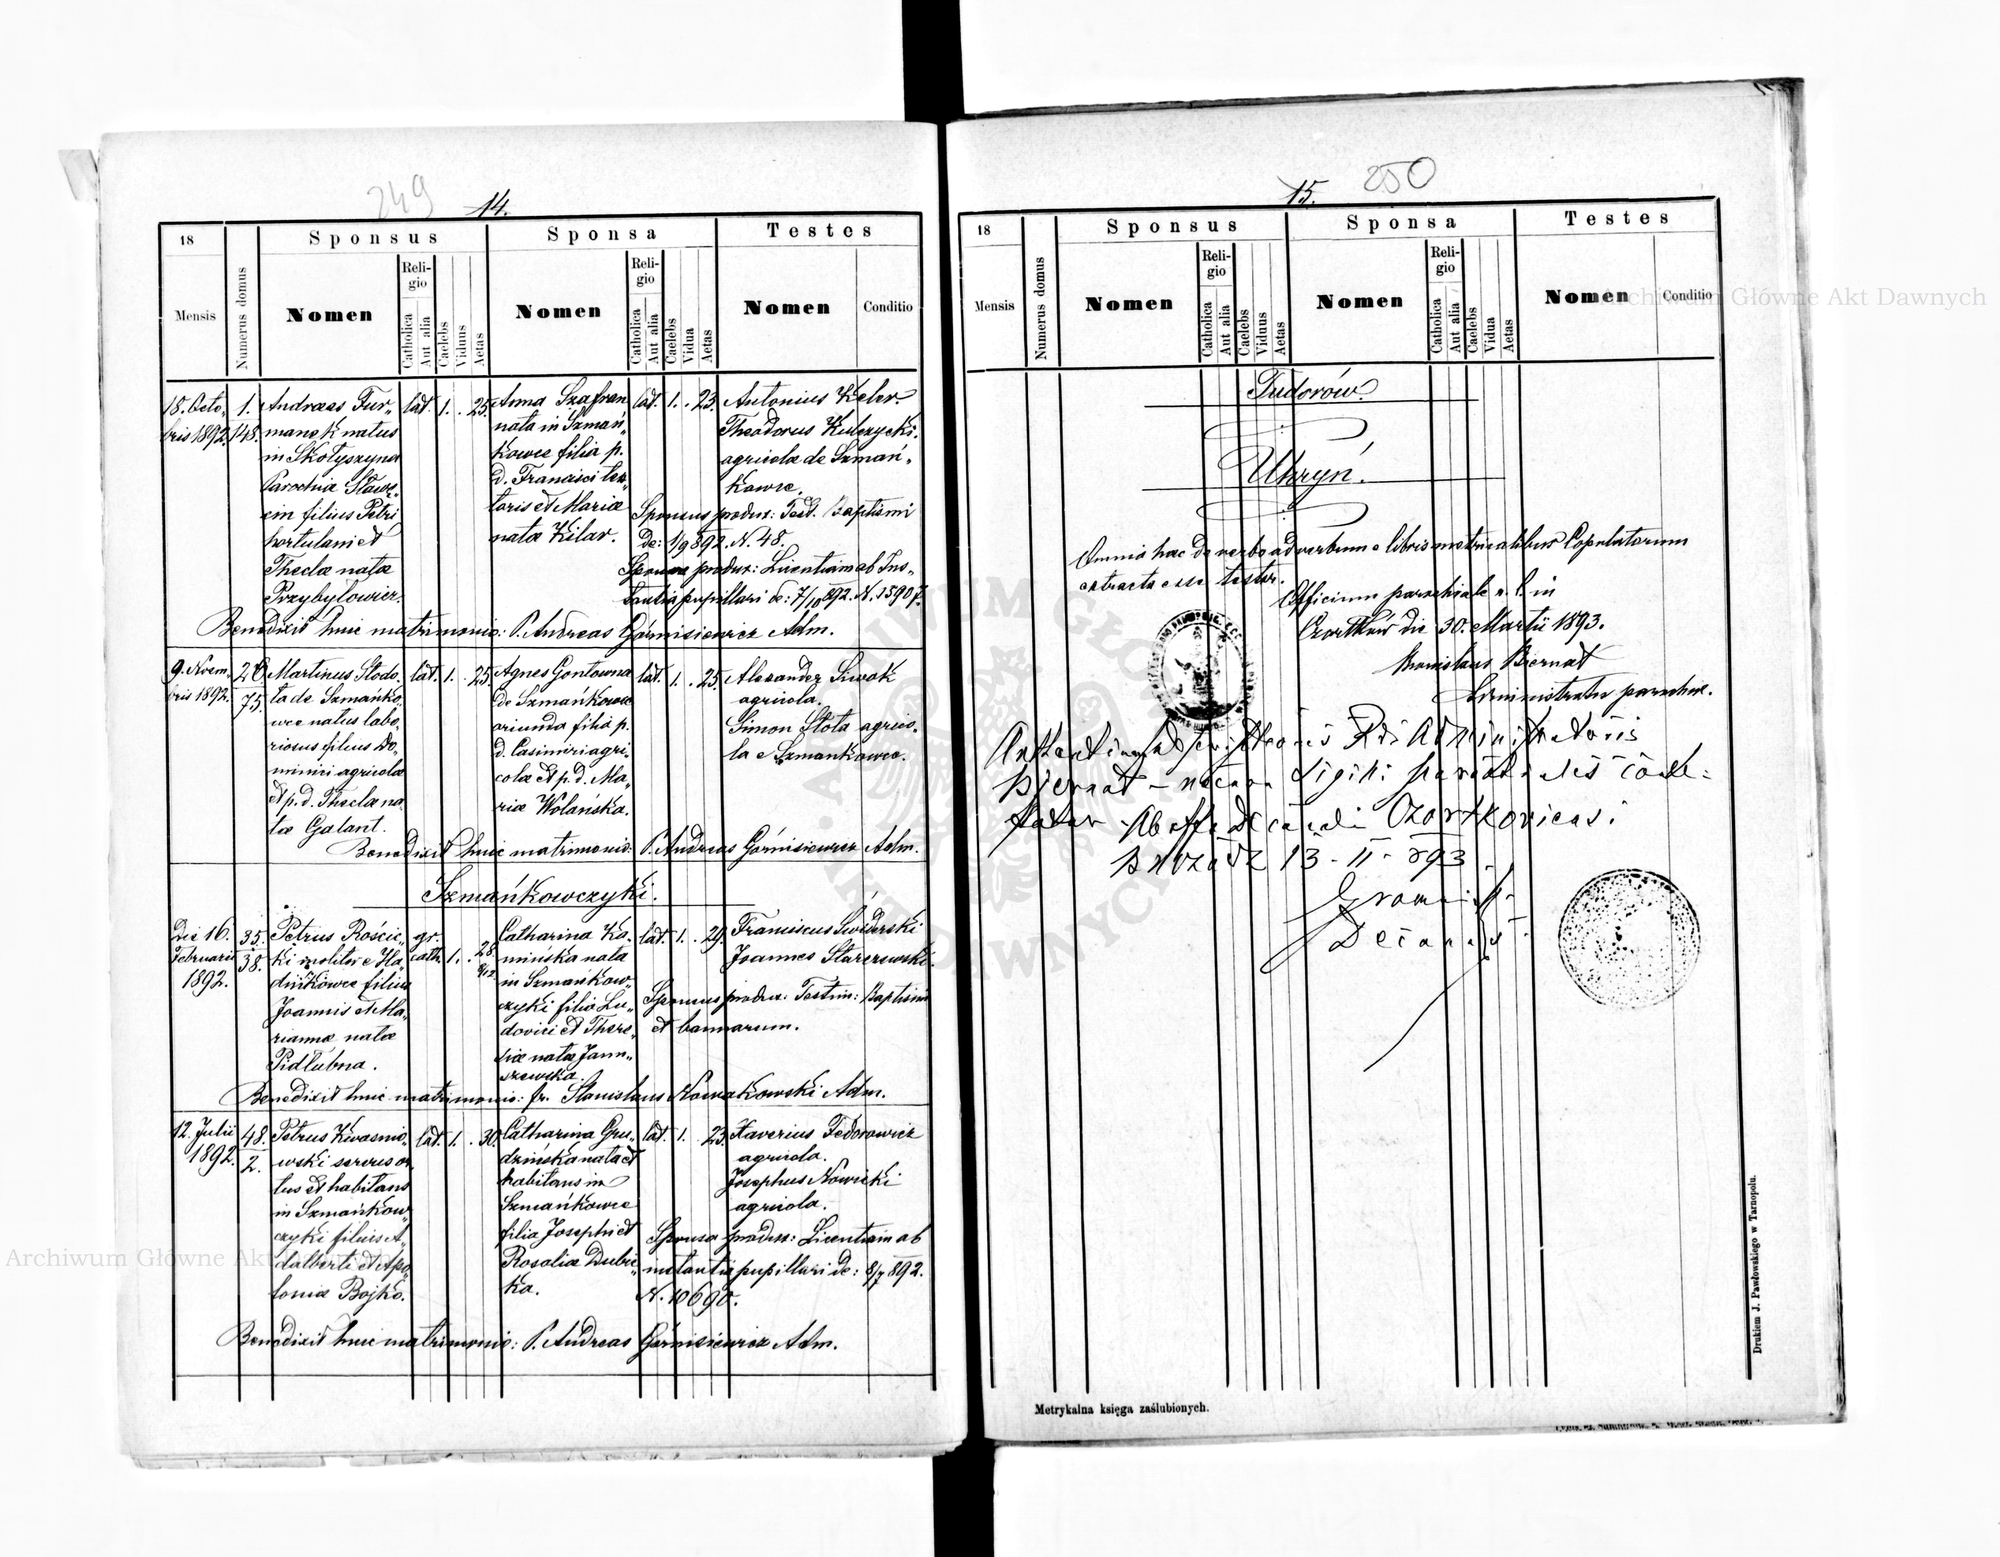 249
14.
18
Sponsus
Sponsa
Testes
Mensis
Numerus domus
Nomen
Religio
Catholica
Aut alia
Caelebs
Viduus
Aetas
Nomen
Religio
Catholica
Aut alia
Caelebs
Vidua
Aetas
Nomen
Conditio
18. Octo-
bris 1892.
1.
148.
Andreas Fur-
manek natus
in Skołyszyna
Parochia Sławę-
cin filius Petri
hortulani et
Theclæ natæ
Przybyłowicz.
lat. 1. . 25.
Anna Szafran
nata in Szmań-
kowce filia p.
d. Francisci tex-
toris et Mariæ
natæ Kilar.
lat. 1. . 23.
Antonius Keler.
Theodorus Kulczycki.
agricolæ de Szmań-
kowce.
Sponsus produx: Test. Baptismi
de: 1/9 892. N. 48.
Sponsa produx: Licentiam ab Ins-
tantia pupillari de: 7/10 892. N. 1590 p.
Benedixit huic matrimonio: P. Andreas Górnisiewicz Adm.
9. Novem-
bris 1892.
26
75.
Martinus Słodo-
ta de Szmańko-
wce natus labo-
riosus filius Do-
minici agricolæ
et p. d. Theclæ na-
tæ Galant.
lat. 1. . 25.
Agnes Gontowna
de Szmańkowce
oriunda filia p.
d. Casimiri agri-
colæ et p. d. Ma-
riæ Wolańska.
lat. 1. . 25.
Alexander Siwak
agricola.
Simon Słota agrico-
la e Szmankowce.
Benedixit huic matrimonio: P. Andreas Górnisiewicz Adm.
Szmańkowczyki.
Die 16.
Februarii
1892.
35.
38.
Petrus Rościc-
ki molitor e Ha-
dińkowce filius
Joannis et Ma-
riannæ natæ
Pidłubna.
gr.
cath. 1. . 28
Catharina Ka-
mińska nata
in Szmańkow-
czyki filia Lu-
dovici et There-
siæ natæ Janu-
szewska.
lat. 1. . 29.
Franciscus Świderski
Joannes Starzewski.
Sponsus produx: Testim: Baptismi
et bannarum.
Benedixit huic matrimonio: fr. Stanislaus Nowakowski Adm.
12. Julii
1892.
48.
2.
Petrus Kwasnio-
wski
tus et habitans
in Szmańkow-
czyki filius A-
dalberti et Apo-
loniæ Bojko.
lat. 1. . 30.
Catharina Gru-
dzińska nata et
habitans in
Szmańkowce
filia Josephi et
Rosaliæ Dubic-
ka.
lat. 1. . 23.
Xaverius Fedorowicz
agricola.
Josephus Nowicki
agricola.
Sponsa produx: Licentiam ab
instantia pupillari de: 8/7 892.
N. 10690.
Benedixit huic matrimonio: P. Andreas Górnisiewicz Adm.
250
15.
18
Sponsus
Sponsa
Testes
Mensis
Numerus domus
Nomen
Religio
Catholica
Aut alia
Caelebs
Viduus
Aetas
Nomen
Religio
Catholica
Aut alia
Caelebs
Vidua
Aetas
Nomen
Conditio
Tudorów.
Uhryń.
Omnia hæc de verbo ad verbum e libris metricalibus Copulatorum
extracta esse testor.
Officium parochiale r. l. in
Czortków die 30. Martii 1893.
Bronislaus Biernat
Administrator parochiæ.
Administratoris
Biernat - necnon Sigilli parochialis
Ab offo Decanali Czortkoviensi
893
Decanus
Metrykalna księga zaślubionych.
Drukiem J. Pawłowskiego w Tarnopolu.
Archiwum Główne Akt Dawnych
Archiwum Główne Akt Dawnych